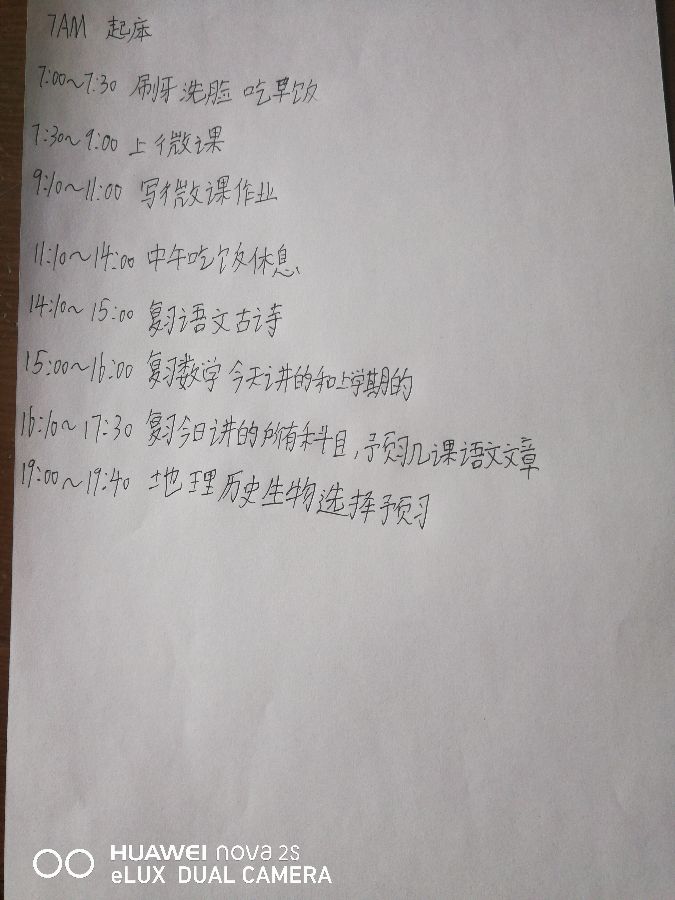 7AM 起床
7:00~7:30 刷牙洗脸 吃早饭
7:30~9:00 上微课
9:10~11:00 写微课作业
11:10~14:00 中午吃饭休息
14:10~15:00 复习语文古诗
15:00~16:00 复习数学 今天讲的和上学期的
16:10~17:30 复习今日讲的所有科目,予页习几课语文文章
19:00~19:40 地理历史生物选择予页习
HUAWEI nova 2s
eLUX DUAL CAMERA